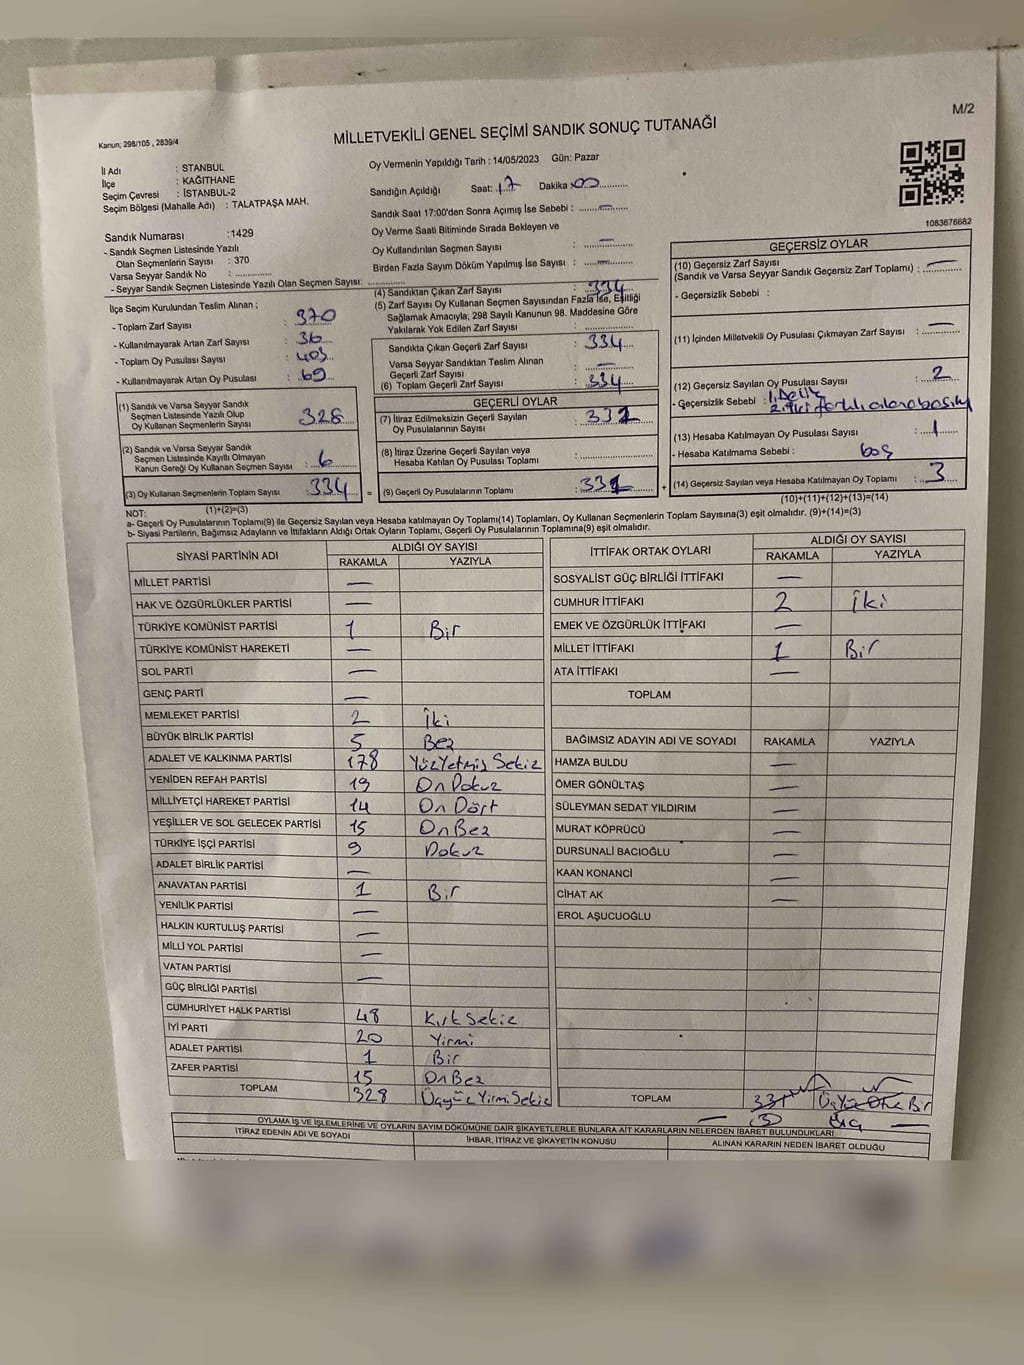 M/2
Kanun; 298/105 , 2839/4
MİLLETVEKİLİ GENEL SEÇİMİ SANDIK SONUÇ TUTANAĞI
İl Adı : STANBUL
İlçe : KAĞITHANE
Seçim Çevresi : İSTANBUL-2
Seçim Bölgesi (Mahalle Adı) : TALATPAŞA MAH.
Oy Vermenin Yapıldığı Tarih : 14/05/2023 Gün: Pazar
Sandığın Açıldığı Saat: 17 Dakika 00
Sandık Saat 17:00'den Sonra Açımış İse Sebebi : —
Oy Verme Saati Bitiminde Sırada Bekleyen ve
Oy Kullandırılan Seçmen Sayısı : —
Birden Fazla Sayım Döküm Yapılmış İse Sayısı : —
1083676682
Sandık Numarası :1429
- Sandık Seçmen Listesinde Yazılı
Olan Seçmenlerin Sayısı : 370
Varsa Seyyar Sandık No :
- Seyyar Sandık Seçmen Listesinde Yazılı Olan Seçmen Sayısı:
İlçe Seçim Kurulundan Teslim Alınan ;
- Toplam Zarf Sayısı : 370
- Kullanılmayarak Artan Zarf Sayısı : 36
- Toplam Oy Pusulası Sayısı : 403
- Kullanılmayarak Artan Oy Pusulası : 69
(1) Sandık ve Varsa Seyyar Sandık
Seçmen Listesinde Yazılı Olup
Oy Kullanan Seçmenlerin Sayısı : 328
(2) Sandık ve Varsa Seyyar Sandık
Seçmen Listesinde Kayıtlı Olmayan
Kanun Gereği Oy Kullanan Seçmen Sayısı : 6
(3) Oy Kullanan Seçmenlerin Toplam Sayısı : 334
(1)+(2)=(3)
(4) Sandıktan Çıkan Zarf Sayısı : 334
(5) Zarf Sayısı Oy Kullanan Seçmen Sayısından Fazla İse, Eşitliği
Sağlamak Amacıyla; 298 Sayılı Kanunun 98. Maddesine Göre
Yakılarak Yok Edilen Zarf Sayısı :
Sandıkta Çıkan Geçerli Zarf Sayısı : 334
Varsa Seyyar Sandıktan Teslim Alınan
Geçerli Zarf Sayısı : —
(6) Toplam Geçerli Zarf Sayısı : 334
GEÇERLİ OYLAR
(7) İtiraz Edilmeksizin Geçerli Sayılan
Oy Pusulalarının Sayısı : 331
(8) İtiraz Üzerine Geçerli Sayılan veya
Hesaba Katılan Oy Pusulası Toplamı :
= (9) Geçerli Oy Pusulalarının Toplamı : 331 +
GEÇERSİZ OYLAR
(10) Geçersiz Zarf Sayısı
(Sandık ve Varsa Seyyar Sandık Geçersiz Zarf Toplamı) : —
- Geçersizlik Sebebi :
(11) İçinden Milletvekili Oy Pusulası Çıkmayan Zarf Sayısı : —
(12) Geçersiz Sayılan Oy Pusulası Sayısı : 2
- Geçersizlik Sebebi : 1. Delik
2. İki farklı alana basılı
(13) Hesaba Katılmayan Oy Pusulası Sayısı : 1
- Hesaba Katılmama Sebebi : boş
(14) Geçersiz Sayılan veya Hesaba Katılmayan Oy Toplamı : 3
(10)+(11)+(12)+(13)=(14)
NOT:
a- Geçerli Oy Pusulalarının Toplamı(9) ile Geçersiz Sayılan veya Hesaba katılmayan Oy Toplamı(14) Toplamları, Oy Kullanan Seçmenlerin Toplam Sayısına(3) eşit olmalıdır. (9)+(14)=(3)
b- Siyasi Partilerin, Bağımsız Adayların ve İttifakların Aldığı Ortak Oyların Toplamı, Geçerli Oy Pusulalarının Toplamına(9) eşit olmalıdır.
SİYASİ PARTİNİN ADI ALDIĞI OY SAYISI
RAKAMLA YAZIYLA
MİLLET PARTİSİ —
HAK VE ÖZGÜRLÜKLER PARTİSİ —
TÜRKİYE KOMÜNİST PARTİSİ 1 Bir
TÜRKİYE KOMÜNİST HAREKETİ —
SOL PARTİ —
GENÇ PARTİ —
MEMLEKET PARTİSİ 2 İki
BÜYÜK BİRLİK PARTİSİ 5 Beş
ADALET VE KALKINMA PARTİSİ 178 YüzYetmiş Sekiz
YENİDEN REFAH PARTİSİ 19 On Dokuz
MİLLİYETÇİ HAREKET PARTİSİ 14 On Dört
YEŞİLLER VE SOL GELECEK PARTİSİ 15 On Beş
TÜRKİYE İŞÇİ PARTİSİ 9 Dokuz
ADALET BİRLİK PARTİSİ —
ANAVATAN PARTİSİ 1 Bir
YENİLİK PARTİSİ —
HALKIN KURTULUŞ PARTİSİ —
MİLLİ YOL PARTİSİ —
VATAN PARTİSİ —
GÜÇ BİRLİĞİ PARTİSİ
CUMHURİYET HALK PARTİSİ 48 Kırk Sekiz
İYİ PARTİ 20 Yirmi
ADALET PARTİSİ 1 Bir
ZAFER PARTİSİ 15 On Beş
TOPLAM 328 Üçyüz Yirmi Sekiz
İTTİFAK ORTAK OYLARI ALDIĞI OY SAYISI
RAKAMLA YAZIYLA
SOSYALİST GÜÇ BİRLİĞİ İTTİFAKI —
CUMHUR İTTİFAKI 2 İki
EMEK VE ÖZGÜRLÜK İTTİFAKI —
MİLLET İTTİFAKI 1 Bir
ATA İTTİFAKI —
TOPLAM
BAĞIMSIZ ADAYIN ADI VE SOYADI RAKAMLA YAZIYLA
HAMZA BULDU —
ÖMER GÖNÜLTAŞ —
SÜLEYMAN SEDAT YILDIRIM —
MURAT KÖPRÜCÜ —
DURSUNALİ BACIOĞLU —
KAAN KONANCİ —
CİHAT AK —
EROL AŞUCUOĞLU
TOPLAM 331 ÜçYüz Otuz Bir
3 Üç
OYLAMA İŞ VE İŞLEMLERİNE VE OYLARIN SAYIM DÖKÜMÜNE DAİR ŞİKAYETLERLE BUNLARA AİT KARARLARIN NELERDEN İBARET BULUNDUKLARI
İTİRAZ EDENİN ADI VE SOYADI İHBAR, İTİRAZ VE ŞİKAYETİN KONUSU ALINAN KARARIN NEDEN İBARET OLDUĞU